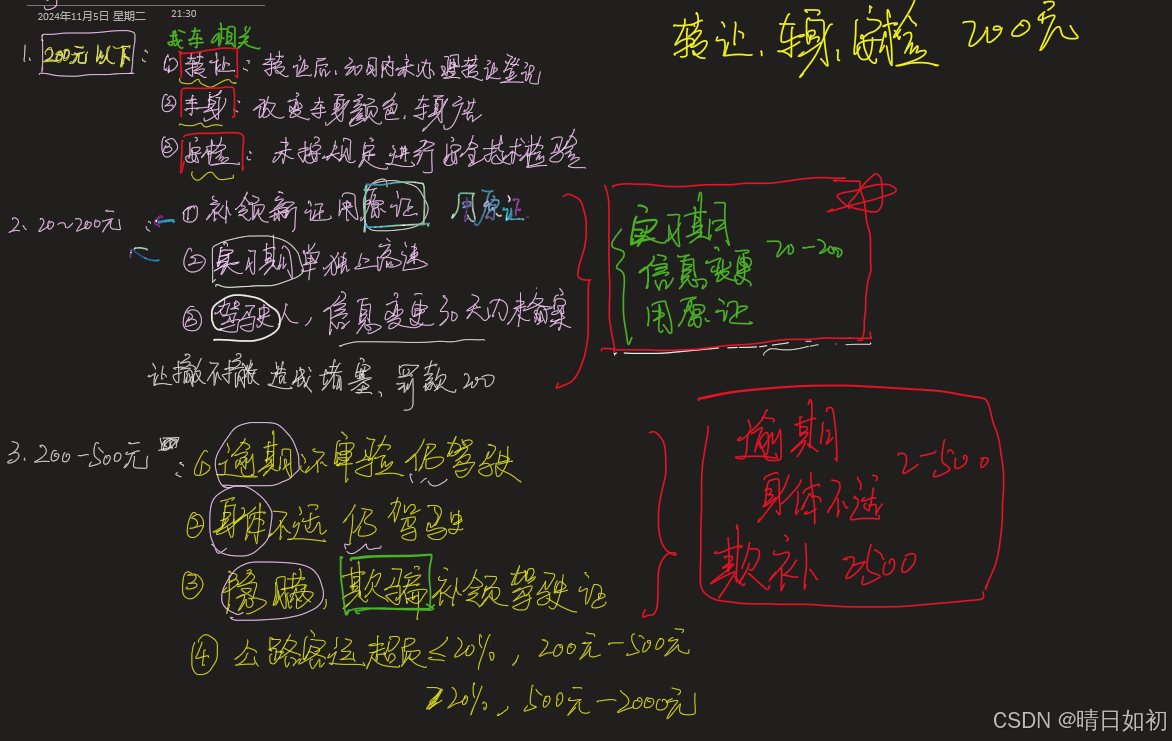 2024年11月5日 星期二 21:30
转证、车身、安检 200元
我车相关
1. 200元以下:
① 转证: 转证后,30日内未办理转证登记
② 车身: 改变车身颜色、车身广告
③ 安检: 未按规定进行安全技术检验
2. 20~200元:
① 补领新证用原证 用原证
② 实习期单独上高速
③ 驾驶人,信息变更30天内未备案
让撤不撤造成堵塞、罚款200
实习期
信息变更 20-200
用原证
3. 200-500元:
① 逾期不审验仍驾驶
② 身体不适仍驾驶
③ 隐瞒,欺骗补领驾驶证
④ 公路客运超员≤20%,200元-500元
≥20%,500元-2000元
逾期
身体不适 2-500
欺补 2500
CSDN @晴日如初